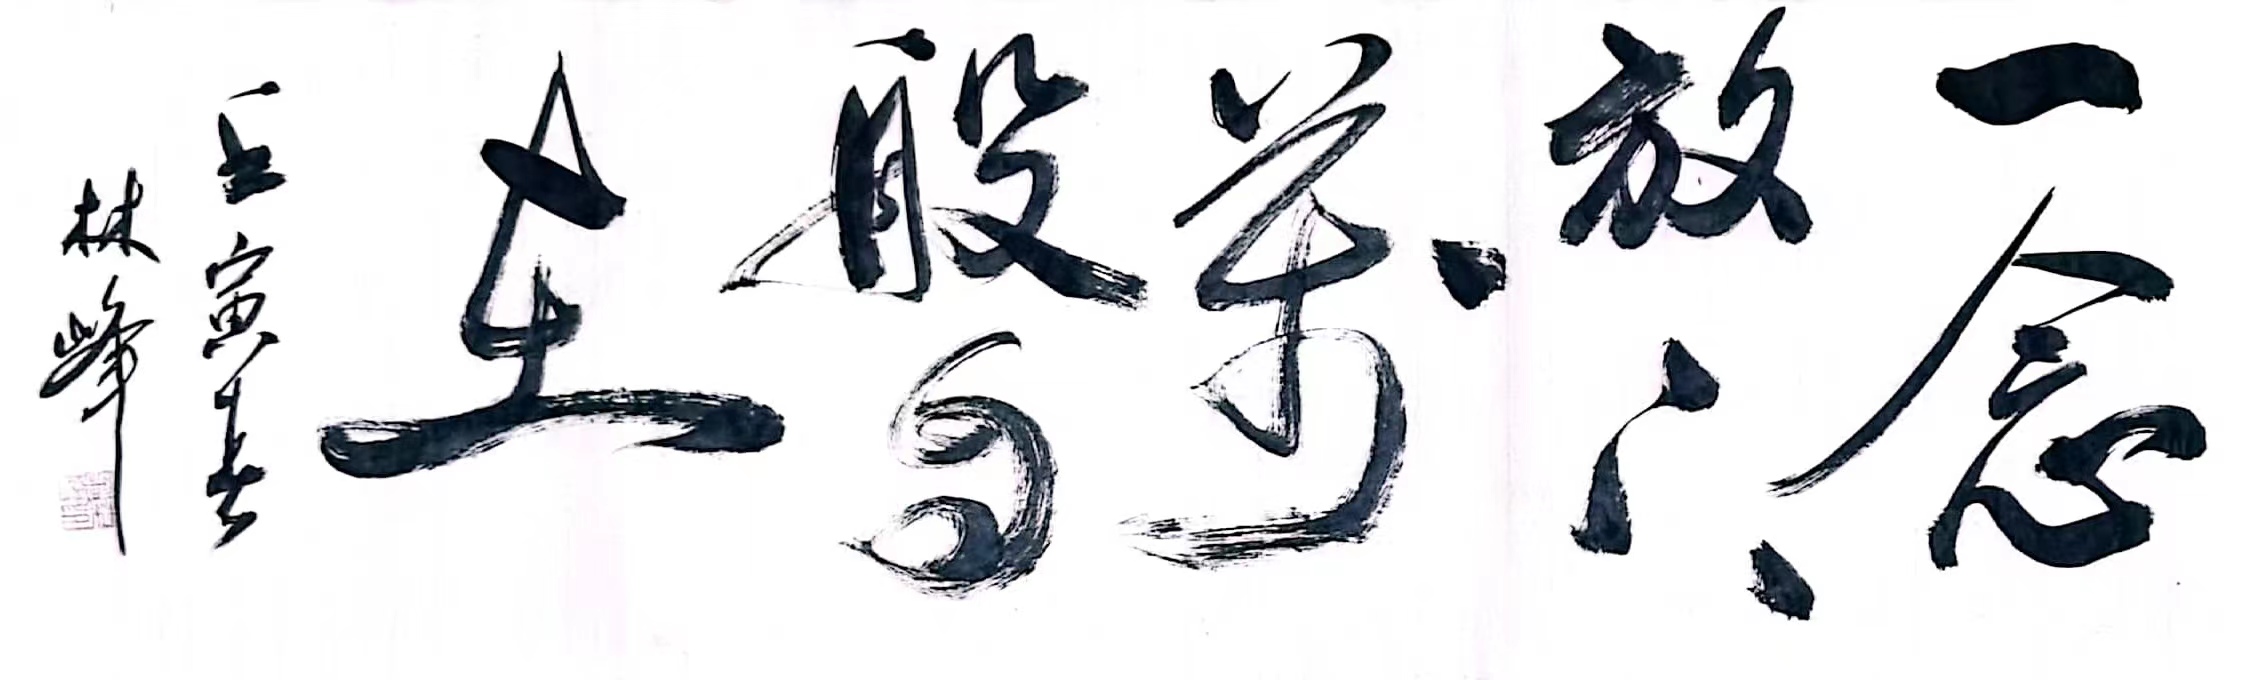 一念
放下
萬
般自
在
壬寅春
林峰